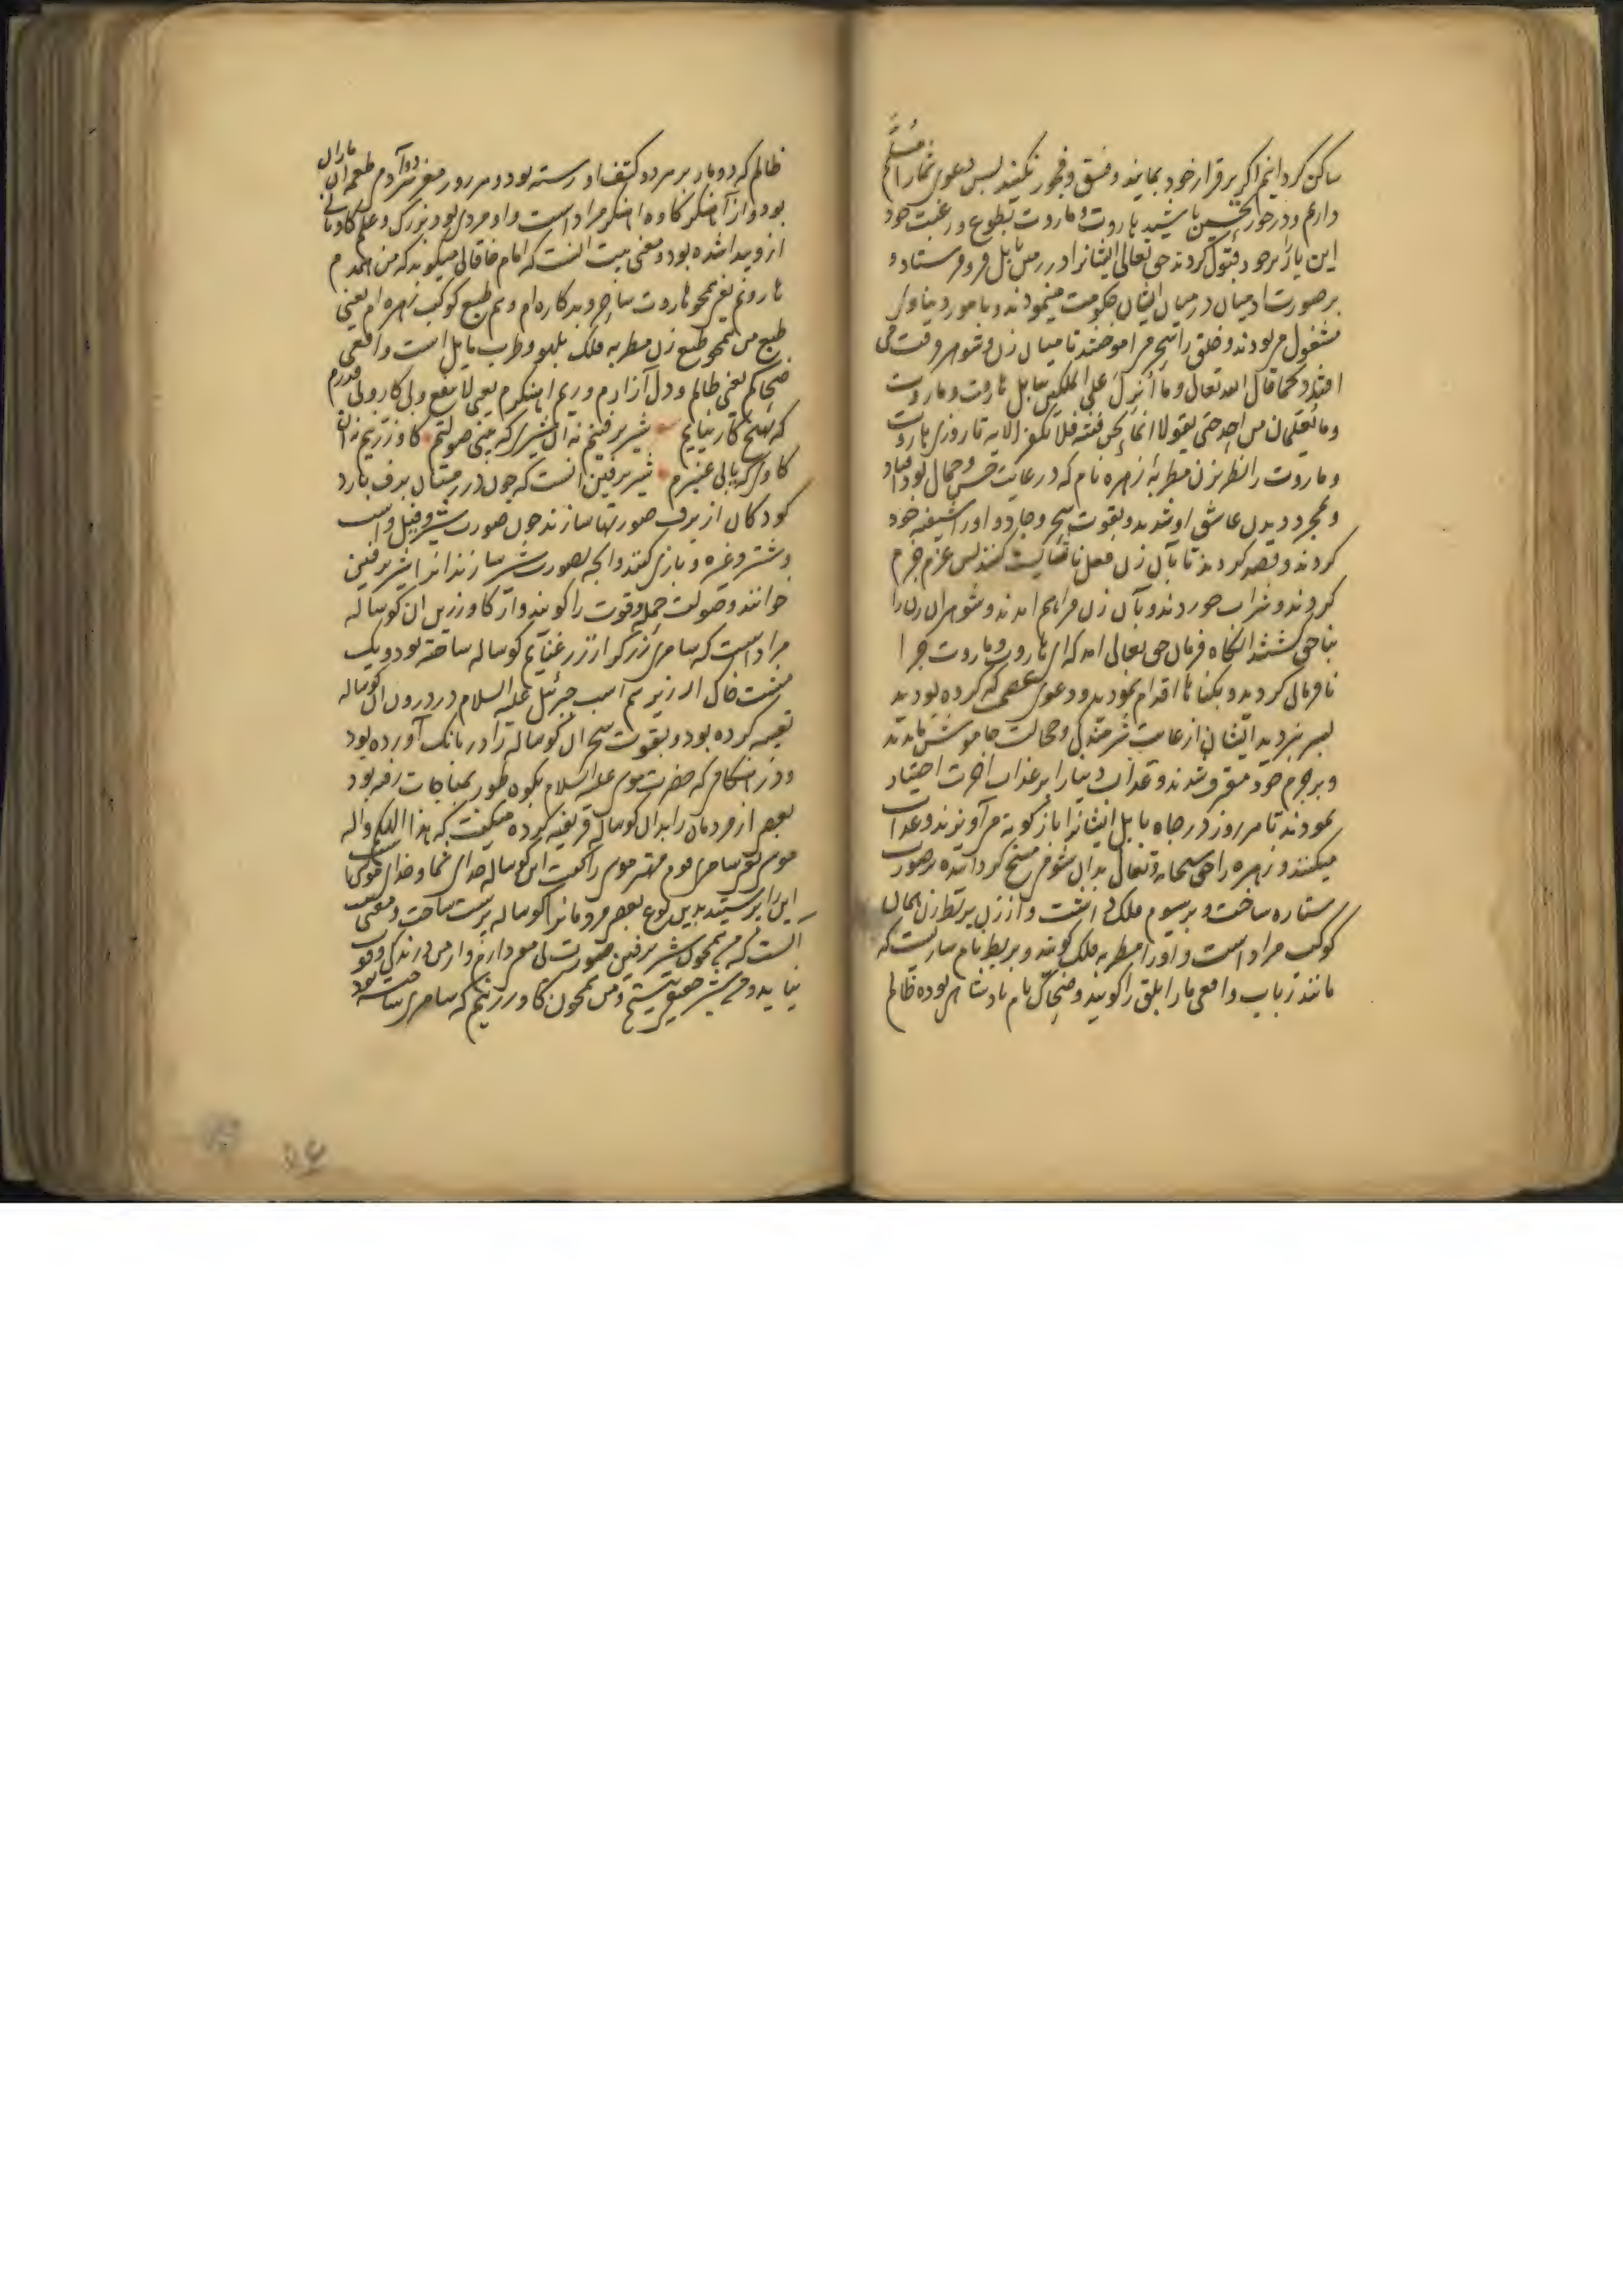 ساکن گردانیم اگر برقرار خود بمانید و فسق و فجور نکنید پس دعوی شمارا مسلم
دارم و درخور تحسین باشید هاروت و ماروت بطوع و رغبت خود
این بار بر خود قبول کردند حق تعالی ایشانرا در زمین بابل فرو فرستاد و
بر صورت ادمیان در میان ایشان حکومت مینمودند و بامور دنیاوی
مشغول می بودند و خلق را سحر می اموختند تا میان زن و شوهر فرقت می
افتد کما قال الله تعالی وما أنزل علی الملکین ببابل هاروت و ماروت
وما یعلمان من احد حتی یقولا انما نحن فتنة فلا تکفر الایه تا روزی هاروت
و ماروت را نظر بزن مطربهٔ زهره نام که در غایت حسن و جمال بود افتاد
و بمجرد دیدن عاشق او شدند و بقوت سحر و جادو او را شیفته خود
کردند و قصد کردند تا بآن زن فعل ناشایست کنند پس عزم جزم
کردند و شراب خوردند و بآن زن فراهم امدند و شوهر ان زن را
بناحق کشتند انگاه فرمان حق تعالی امد که ای هاروت و ماروت چرا
نافرمانی کردید و بگناه ها اقدام نمودید و دعوی عصمی که کرده بودید
بسر نبردید ایشان از غایت شرمندگی و خجالت خاموش ماندند
و بر جرم خود معترف شدند و عذاب دنیا را بر عذاب اخرت اختیار
نمودند تا هر روز در چاه بابل ایشانرا باژگونه می آویزند و عذاب
میکنند و زهره را حق سبحانه و تعالی بدان شوخی مسخ گردانیده بر صورت
ستاره ساخت و بر سیوم فلک داشت و از زن بربط زن همان
کوکب مراد است و او را مطربه فلک گویند و بربط نام سازیست که
مانند رباب و افعی مار ابلق را گویند و ضحاک نام پادشاهی بوده ظالم
ظالم که دو مار بر هر دو کتف او رسته بود و هر روز مغز سر دو آدم طعمه ان ماران
بود و از آهنگر کاوه اهنگر مراد است و او مردی بود بزرگ و علم کاویانی
ازو پیدا شده بود و معنی بیت انست که امام خاقانی میگوید که من همدم
هاروتم یعنی همچو هاروت ساحر و بدکاره ام و هم طبع کوکب زهره ام یعنی
طبع من همچو طبع زن مطربه فلک بلهو و طرب مایل است و افعی
ضحاکم یعنی ظالم و دل آزارم و ریم اهنگرم یعنی لا ینفع و بی کار و بی قدرم
که هیچ کار نیایم شیر برفینم نه آن شیری که بینی صولتم گاو زرینم نه ان
گاوی که یابی عنبرم شیر برفین انست که چون در زمستان برف بارد
کودکان از برف صورتها سازند چون صورت شیر و فیل و اسب
و شتر و غیره و بازی کنند و انچه بصورت شیر سازند انرا شیر برفین
خوانند و صولت حمله و قوت را گویند و از گاو زرین ان گوساله
مراد است که سامری زرگر از زر غنایم گوساله ساخته بود و یک
مشت خاک از زیر سم اسب جبرئیل علیه السلام در درون ان گوساله
تعبیه کرده بود و بقوت سحر ان گوساله را در بانگ آورده بود
و در هنگامی که حضرت موسی علیه السلام بکوه طور بمناجات رفته بود
بعضی از مردمان را بدان گوساله فریفته کرده میگفت که هذا الهکم و اله
موسی یعنی سامری قوم مهتر موسی را گفت این گوساله خدای شما و خدای موسی است
این را بپرستید بدین نوع بعضی مردمانرا گوساله پرست ساخت و معنی بیت
انست که من همچون شیر برفین صورت بی معنی دارم و از من درندگی و قوت
نیاید و من شیر حقیقی نیستم و من همچون گاو زرینم که سامری ساخته بود